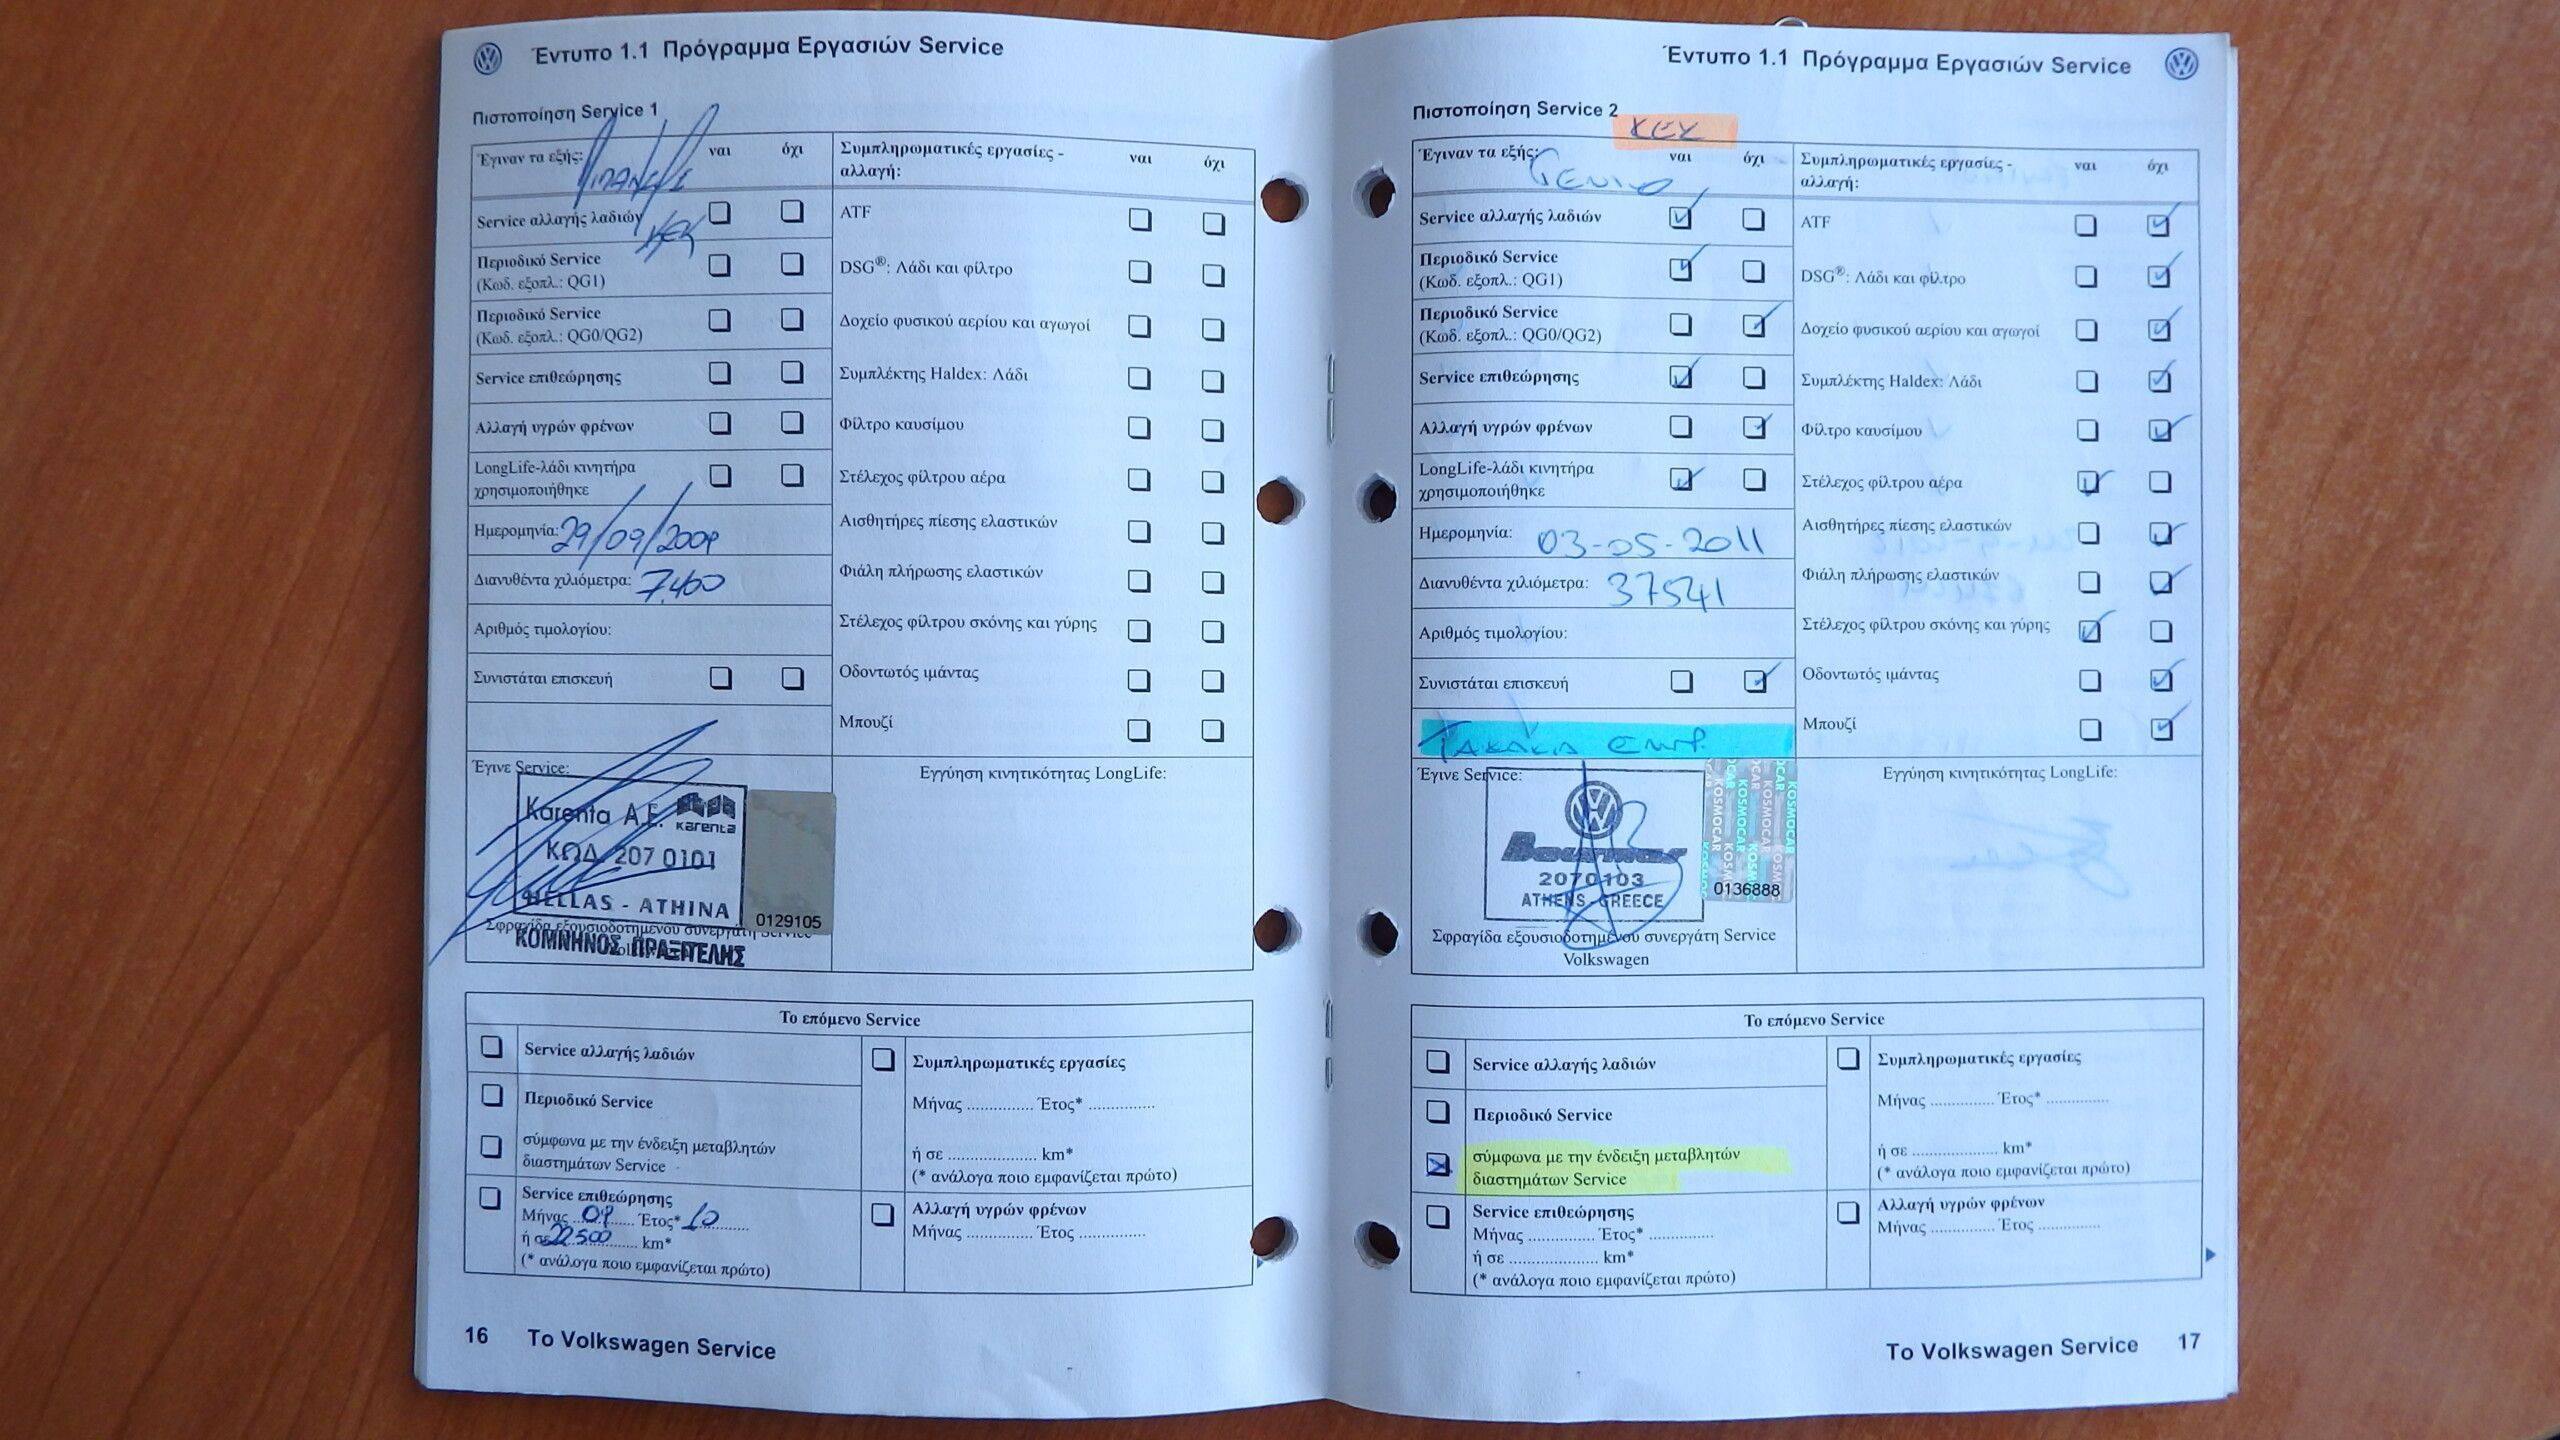 Έντυπο 1.1 Πρόγραμμα Εργασιών Service
Πιστοποίηση Service 1
Έγιναν τα εξής: ναι όχι
Service αλλαγής λαδιών
ΚΕΚ
Περιοδικό Service
(Κωδ. εξοπλ.: QG1)
Περιοδικό Service
(Κωδ. εξοπλ.: QG0/QG2)
Service επιθεώρησης
Αλλαγή υγρών φρένων
LongLife-λάδι κινητήρα
χρησιμοποιήθηκε
Ημερομηνία: 29/09/2009
Διανυθέντα χιλιόμετρα: 7.400
Αριθμός τιμολογίου:
Συνιστάται επισκευή
Συμπληρωματικές εργασίες - ναι όχι
αλλαγή:
ATF
DSG®: Λάδι και φίλτρο
Δοχείο φυσικού αερίου και αγωγοί
Συμπλέκτης Haldex: Λάδι
Φίλτρο καυσίμου
Στέλεχος φίλτρου αέρα
Αισθητήρες πίεσης ελαστικών
Φιάλη πλήρωσης ελαστικών
Στέλεχος φίλτρου σκόνης και γύρης
Οδοντωτός ιμάντας
Μπουζί
Έγινε Service:
Karenta A.E. Karenta
ΚΩΔ. 207 0101
HELLAS - ATHINA
0129105
Σφραγίδα εξουσιοδοτημένου συνεργάτη Service
ΚΟΜΝΗΝΟΣ ΠΡΑΞΙΤΕΛΗΣ
Εγγύηση κινητικότητας LongLife:
Το επόμενο Service
Service αλλαγής λαδιών
Περιοδικό Service
σύμφωνα με την ένδειξη μεταβλητών
διαστημάτων Service
Service επιθεώρησης
Μήνας 09 Έτος* 10
ή σε 22500 km*
(* ανάλογα ποιο εμφανίζεται πρώτο)
Συμπληρωματικές εργασίες
Μήνας ............... Έτος* ...............
ή σε ..................... km*
(* ανάλογα ποιο εμφανίζεται πρώτο)
Αλλαγή υγρών φρένων
Μήνας ............... Έτος ...............
16 Το Volkswagen Service
Έντυπο 1.1 Πρόγραμμα Εργασιών Service
Πιστοποίηση Service 2
ΚΕΚ
Έγιναν τα εξής: ναι όχι
Service αλλαγής λαδιών
Περιοδικό Service
(Κωδ. εξοπλ.: QG1)
Περιοδικό Service
(Κωδ. εξοπλ.: QG0/QG2)
Service επιθεώρησης
Αλλαγή υγρών φρένων
LongLife-λάδι κινητήρα
χρησιμοποιήθηκε
Ημερομηνία: 03-05-2011
Διανυθέντα χιλιόμετρα: 37541
Αριθμός τιμολογίου:
Συνιστάται επισκευή
ΤΑΚΑΚΙΑ ΕΜΠΡ.
Συμπληρωματικές εργασίες - ναι όχι
αλλαγή:
ATF
DSG®: Λάδι και φίλτρο
Δοχείο φυσικού αερίου και αγωγοί
Συμπλέκτης Haldex: Λάδι
Φίλτρο καυσίμου
Στέλεχος φίλτρου αέρα
Αισθητήρες πίεσης ελαστικών
Φιάλη πλήρωσης ελαστικών
Στέλεχος φίλτρου σκόνης και γύρης
Οδοντωτός ιμάντας
Μπουζί
Έγινε Service:
2070103
ATHENS - GREECE
KOSMOCAR
0136888
Σφραγίδα εξουσιοδοτημένου συνεργάτη Service
Volkswagen
Εγγύηση κινητικότητας LongLife:
Το επόμενο Service
Service αλλαγής λαδιών
Περιοδικό Service
σύμφωνα με την ένδειξη μεταβλητών
διαστημάτων Service
Service επιθεώρησης
Μήνας ............... Έτος* ...............
ή σε ..................... km*
(* ανάλογα ποιο εμφανίζεται πρώτο)
Συμπληρωματικές εργασίες
Μήνας ............... Έτος* ...............
ή σε ..................... km*
(* ανάλογα ποιο εμφανίζεται πρώτο)
Αλλαγή υγρών φρένων
Μήνας ............... Έτος ...............
Το Volkswagen Service 17